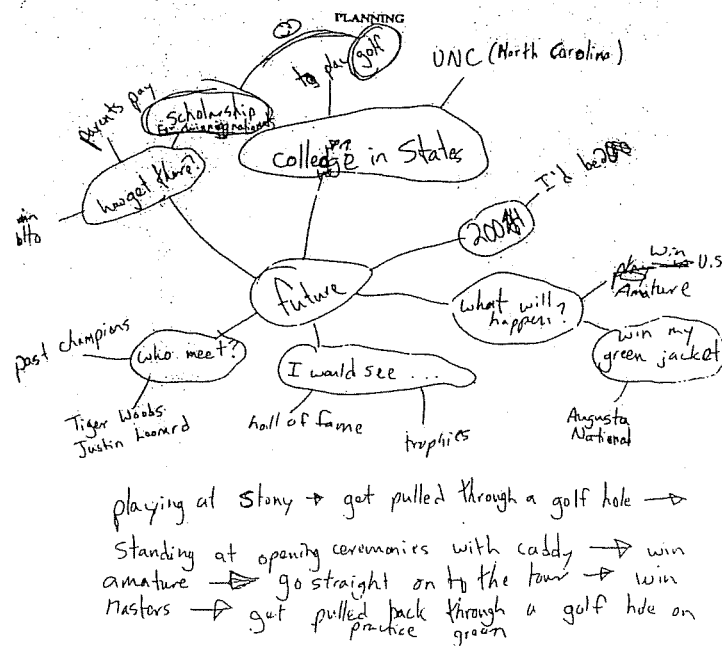 PLANNING
golf
to play
UNC (North Carolina)
parents pay
scholarship
for winning nationals
colledge in States
how get there?
win
I'd be
future
what will
happen?
win U.S
Amature
win my
green jacket
Augusta
National
past champions
who meet?
Tiger Woobs
Justin Leonard
I would see ...
hall of fame
trophies
playing at Stony → get pulled through a golf hole →
Standing at opening ceremonies with caddy → win
amature → go straight on to the tour → win
Masters → get pulled back through a golf hole on
practice green